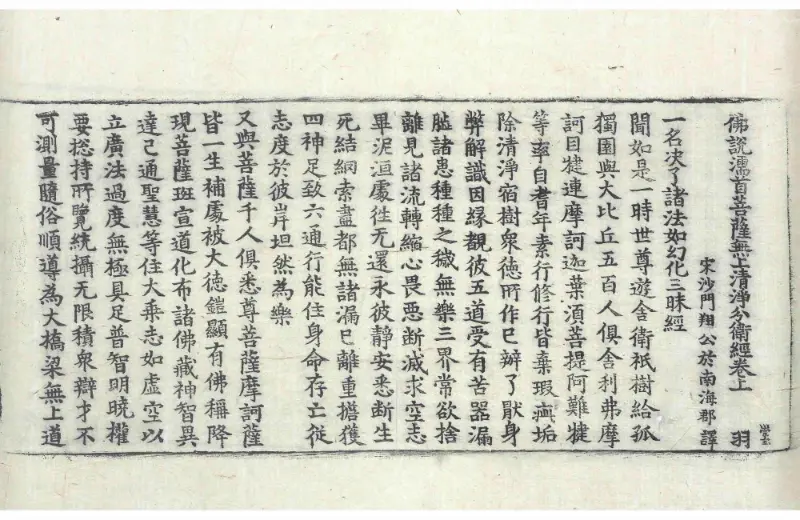 佛說濡首菩薩無上清淨分衛經卷上　羽
宋沙門翔公於南海郡譯
一名決了諸法如幻化三昧經
聞如是一時世尊遊舍衛祇樹給孤
獨園與大比丘五百人俱舍利弗摩
訶目犍連摩訶迦葉須菩提阿難犍
等率自耆年素行修行皆棄瑕疵垢
除清淨宿樹衆德所作已辦了猒身
弊解識因緣覩彼五道受有苦器漏
諸患種種之穢無樂三界常欲捨
離見諸流轉縮心畏惡斷滅求空志
畢泥洹處徃无還永彼靜安悉斷生
死結網索盡都無諸漏已離重擔獲
四神足致六通行能住身命存亡從
志度於彼岸坦然為樂
又與菩薩千人俱悉尊菩薩摩訶薩
皆一生補處被大德鎧顯有佛稱降
現菩薩班宣道化布諸佛藏神智異
達已通聖慧等住大乘志如虛空以
立廣法過度無極具足普智明曉權
要揔持所覽統攝无限積衆辯才不
可測量隨俗順導為大橋梁無上道